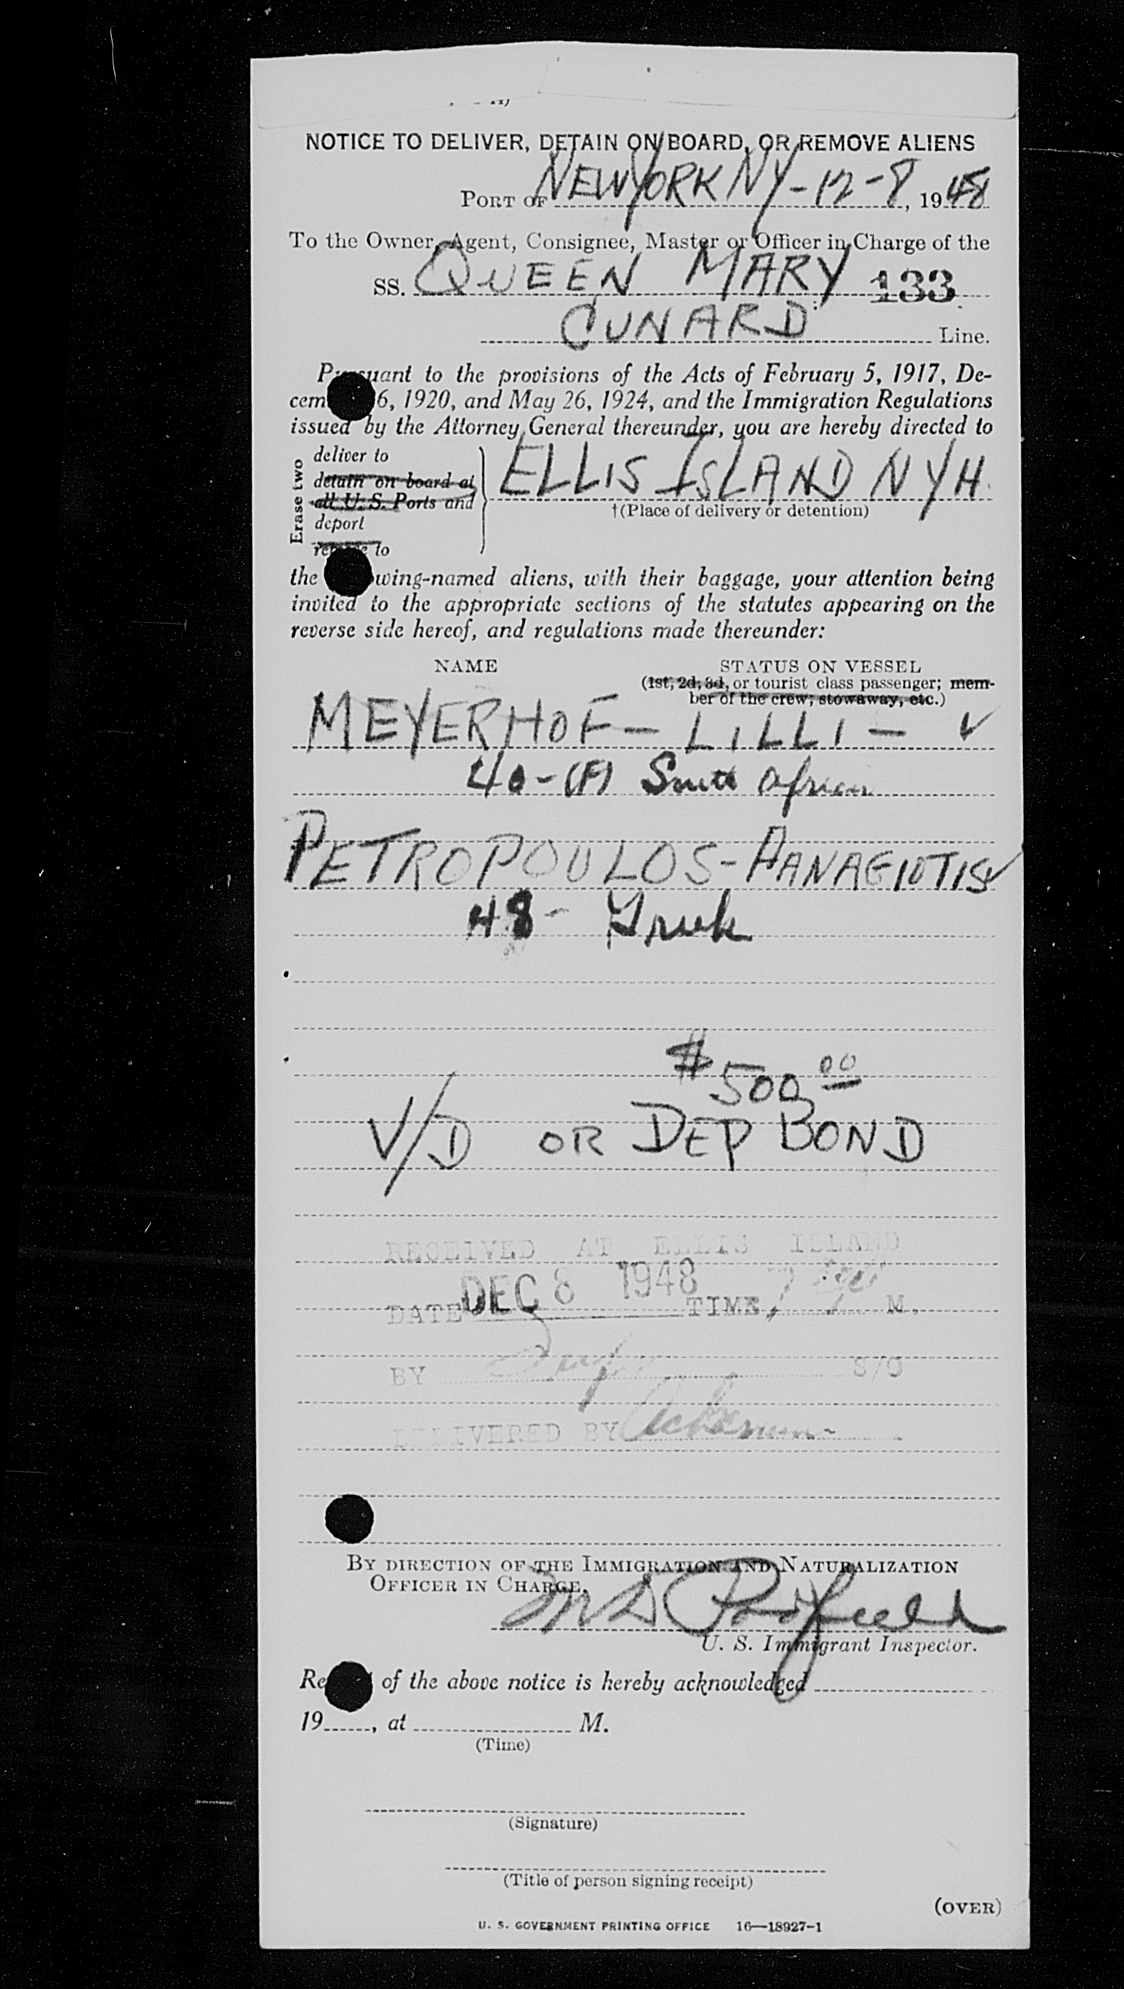 NOTICE TO DELIVER, DETAIN ON BOARD, OR REMOVE ALIENS
PORT OF NEW YORK NY-12-8, 1948
To the Owner, Agent, Consignee, Master or Officer in Charge of the
SS. QUEEN MARY 133
CUNARD Line.
Pursuant to the provisions of the Acts of February 5, 1917, De-
cem 6, 1920, and May 26, 1924, and the Immigration Regulations
issued by the Attorney General thereunder, you are hereby directed to
Erase two
deliver to
detain on board at
all U. S. Ports and
deport
remove to
ELLIS ISLAND NYH.
†(Place of delivery or detention)
the wing-named aliens, with their baggage, your attention being
invited to the appropriate sections of the statutes appearing on the
reverse side hereof, and regulations made thereunder:
NAME STATUS ON VESSEL
(1st, 2d, 3d, or tourist class passenger; mem-
ber of the crew; stowaway, etc.)
MEYERHOF - LILLI - ✓
40-(F) South African
PETROPOULOS-PANAGIOTIS ✓
48- Greek
$500.00
V/D OR DEP BOND
RECEIVED AT ELLIS ISLAND
DATE DEC 8 1948 TIME 7 M.
BY S/O
DELIVERED BY Ackerman
BY DIRECTION OF THE IMMIGRATION AND NATURALIZATION
OFFICER IN CHARGE.
M D Padfield
U. S. Immigrant Inspector.
Re of the above notice is hereby acknowledged
19 , at M.
(Time)
(Signature)
(Title of person signing receipt)
(OVER)
U. S. GOVERNMENT PRINTING OFFICE 16—18927-1